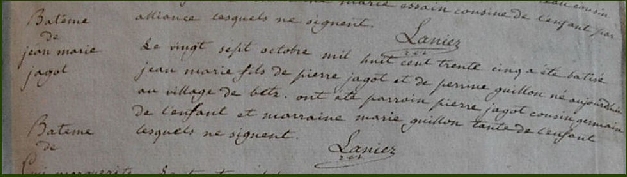 marie essain cousine de l'enfant par
Bateme
alliance lesquels ne signent.
Laniez
de
jean marie
jagot
Le vingt sept octobre mil huit cent trente cinq a été batisé
jean marie fils de pierre jagot et de perrine guillon né aujourdhui
au village de betz. ont été parrain pierre jagot cousin germain
de l'enfant et marraine marie guillon tante de l'enfant
lesquels ne signent.
Laniez
Bateme
de
marguerite